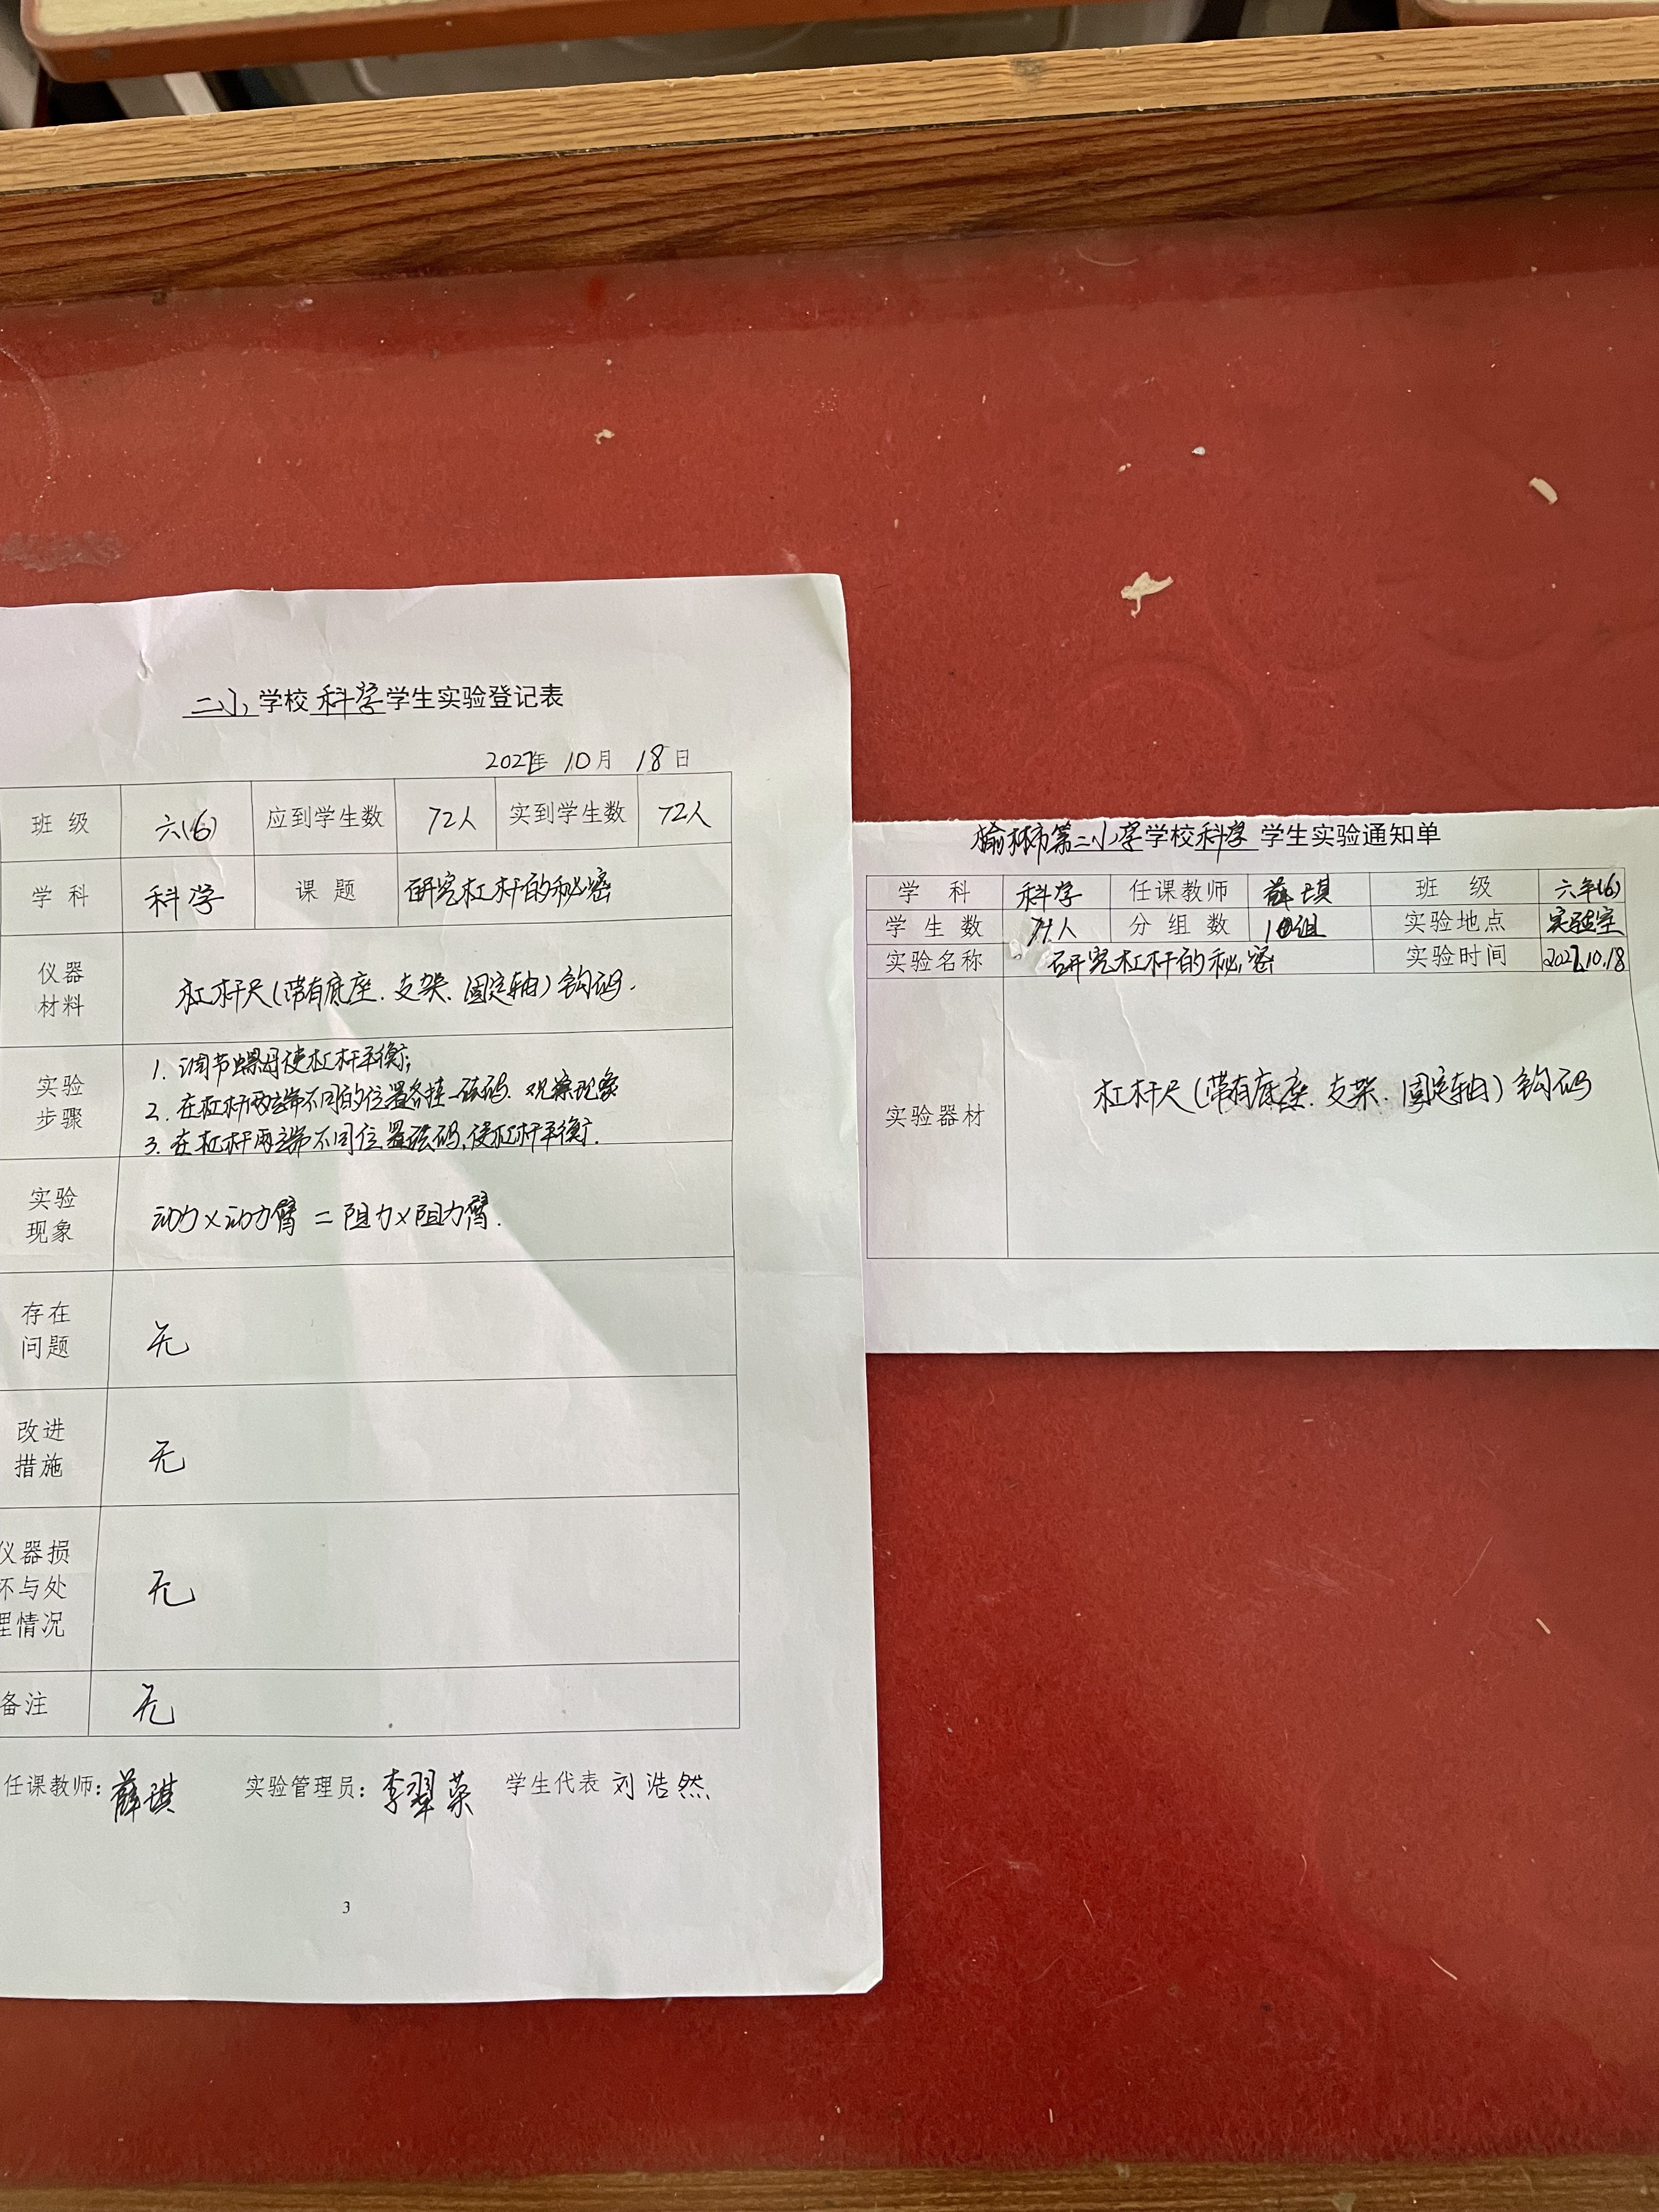 二小学校科学学生实验登记表
2022年 10月 18日
班级 六(6) 应到学生数 72人 实到学生数 72人
学科 科学 课题 研究杠杆的秘密
仪器材料 杠杆尺(带有底座、支架、固定轴)钩码.
实验步骤
1. 调节螺母使杠杆平衡;
2. 在杠杆两端不同的位置各挂一砝码.观察现象
3. 在杠杆两端不同位置砝码,使杠杆平衡.
实验现象 动力×动力臂=阻力×阻力臂.
存在问题 无
改进措施 无
仪器损
坏与处
理情况 无
备注 无
任课教师:薛琪 实验管理员:李翠荣 学生代表 刘浩然
3
榆林市第二小学学校科学学生实验通知单
学科 科学 任课教师 薛琪 班级 六年(6)
学生数 分组数 实验地点 实验室
实验名称 研究杠杆的秘密 实验时间 2022.10.18
实验器材 杠杆尺(带有底座.支架.固定轴)钩码